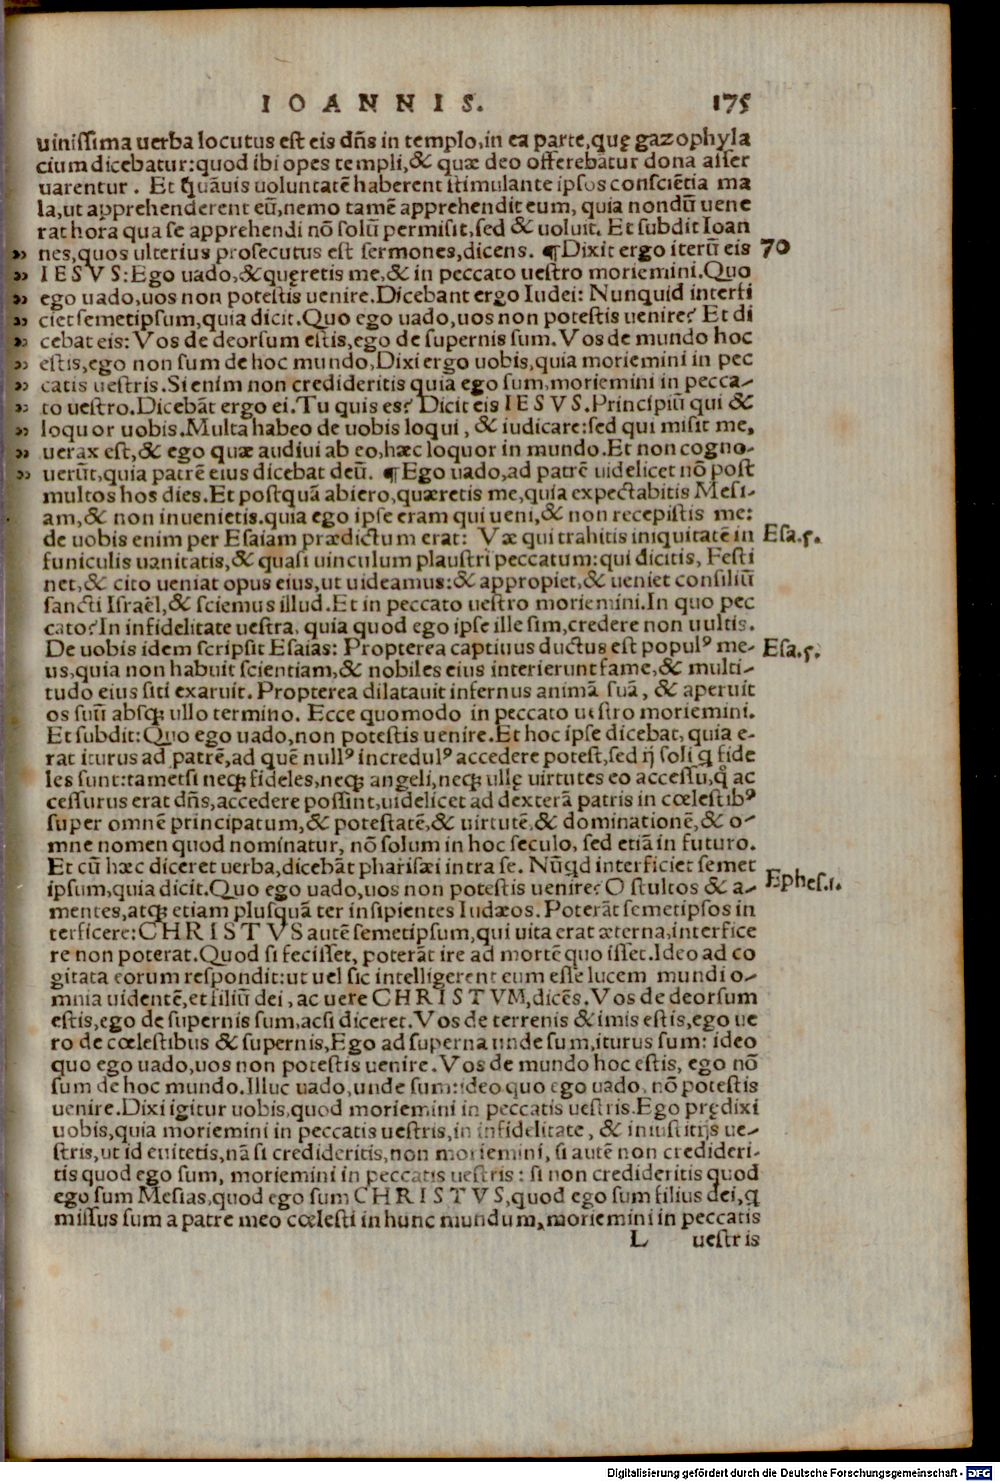 IOANNIS. 175
uiniſſima uerba locutus eſt eis dñs in templo, in ea parte, quę gazophyla
cium dicebatur: quod ibi opes templi, & quæ deo offerebatur dona aſſer
uarentur. Et quãuis uoluntatẽ haberent ſtimulante ipſos conſciẽtia ma
la, ut apprehenderent eũ, nemo tamẽ apprehendit eum, quia nondũ uene
rat hora qua ſe apprehendi nõ ſolũ permiſit, ſed & uoluit. Et ſubdit Ioan
„ nes, quos ulterius proſecutus eſt ſermones, dicens. ¶ Dixit ergo iterũ eis 70
„ IESVS: Ego uado, & quęretis me, & in peccato ueſtro moriemini. Quo
„ ego uado, uos non poteſtis uenire. Dicebant ergo Iudei: Nunquid interfi
„ ciet ſemetipſum, quia dicit. Quo ego uado, uos non poteſtis uenire? Et di
„ cebat eis: Vos de deorſum eſtis, ego de ſupernis ſum. Vos de mundo hoc
„ eſtis, ego non ſum de hoc mundo, Dixi ergo uobis, quia moriemini in pec
„ catis ueſtris. Si enim non credideritis quia ego ſum, moriemini in pecca-
„ to ueſtro. Dicebãt ergo ei. Tu quis es? Dicit eis IESVS. Principiũ qui &
„ loquor uobis. Multa habeo de uobis loqui, & iudicare: ſed qui miſit me,
„ uerax eſt, & ego quæ audiui ab eo, hæc loquor in mundo. Et non cogno-
„ uerũt, quia patrẽ eius dicebat deũ. ¶ Ego uado, ad patrẽ uidelicet nõ poſt
multos hos dies. Et poſtquã abiero, quæretis me, quia expectabitis Meſi-
am, & non inuenietis. quia ego ipſe eram qui ueni, & non recepiſtis me:
de uobis enim per Eſaiam prædictum erat: Væ qui trahitis iniquitatẽ in Eſa.5.
funiculis uanitatis, & quaſi uinculum plauſtri peccatum: qui dicitis, Feſti
net, & cito ueniat opus eius, ut uideamus: & appropiet, & ueniet conſiliũ
ſancti Iſraël, & ſciemus illud. Et in peccato ueſtro moriemini. In quo pec
cato? In infidelitate ueſtra, quia quod ego ipſe ille ſim, credere non uultis.
De uobis idem ſcripſit Eſaias: Propterea captiuus ductus eſt populꝰ me- Eſa.5.
us, quia non habuit ſcientiam, & nobiles eius interierunt fame, & multi-
tudo eius ſiti exaruit. Propterea dilatauit infernus animã ſuã, & aperuit
os ſuũ abſq́; ullo termino. Ecce quomodo in peccato ueſtro moriemini.
Et ſubdit: Quo ego uado, non poteſtis uenire. Et hoc ipſe dicebat, quia e-
rat iturus ad patrẽ, ad quẽ nullꝰ incredulꝰ accedere poteſt, ſed ij ſoli q fide
les ſunt: tametſi neq; fideles, neq; angeli, neq; ullę uirtutes eo acceſſu, q̃ ac
ceſſurus erat dñs, accedere poſſint, uidelicet ad dexterã patris in cœleſtibꝰ
ſuper omnẽ principatum, & poteſtatẽ, & uirtutẽ, & dominationẽ, & o-
mne nomen quod nominatur, nõ ſolum in hoc ſeculo, ſed etiã in futuro.
Et cũ hæc diceret uerba, dicebãt phariſæi intra ſe. Nũqd interficiet ſemet
ipſum, quia dicit. Quo ego uado, uos non poteſtis uenire? O ſtultos & a- Epheſ.1.
mentes, atq; etiam pluſquã ter inſipientes Iudæos. Poterãt ſemetipſos in
terficere: CHRISTVS autẽ ſemetipſum, qui uita erat æterna, interfice
re non poterat. Quod ſi feciſſet, poterãt ire ad mortẽ quo iſſet. Ideo ad co
gitata eorum reſpondit: ut uel ſic intelligerent eum eſſe lucem mundi o-
mnia uidentẽ, et filiũ dei, ac uere CHRISTVM, dicẽs. Vos de deorſum
eſtis, ego de ſupernis ſum, acſi diceret. Vos de terrenis & imis eſtis, ego ue
ro de cœleſtibus & ſupernis, Ego ad ſuperna unde ſum, iturus ſum: ideo
quo ego uado, uos non poteſtis uenire. Vos de mundo hoc eſtis, ego nõ
ſum de hoc mundo. Illuc uado, unde ſum: ideo quo ego uado, nõ poteſtis
uenire. Dixi igitur uobis, quod moriemini in peccatis ueſtris. Ego prędixi
uobis, quia moriemini in peccatis ueſtris, in infidelitate, & iniuſtitijs ue-
ſtris, ut id euitetis, nã ſi credideritis, non moriemini, ſi autẽ non credideri-
tis quod ego ſum, moriemini in peccatis ueſtris: ſi non credideritis quod
ego ſum Meſias, quod ego ſum CHRISTVS, quod ego ſum filius dei, q
miſſus ſum a patre meo cœleſti in hunc mundum, moriemini in peccatis
L ueſtris
Digitalisierung gefördert durch die Deutsche Forschungsgemeinschaft - DFG